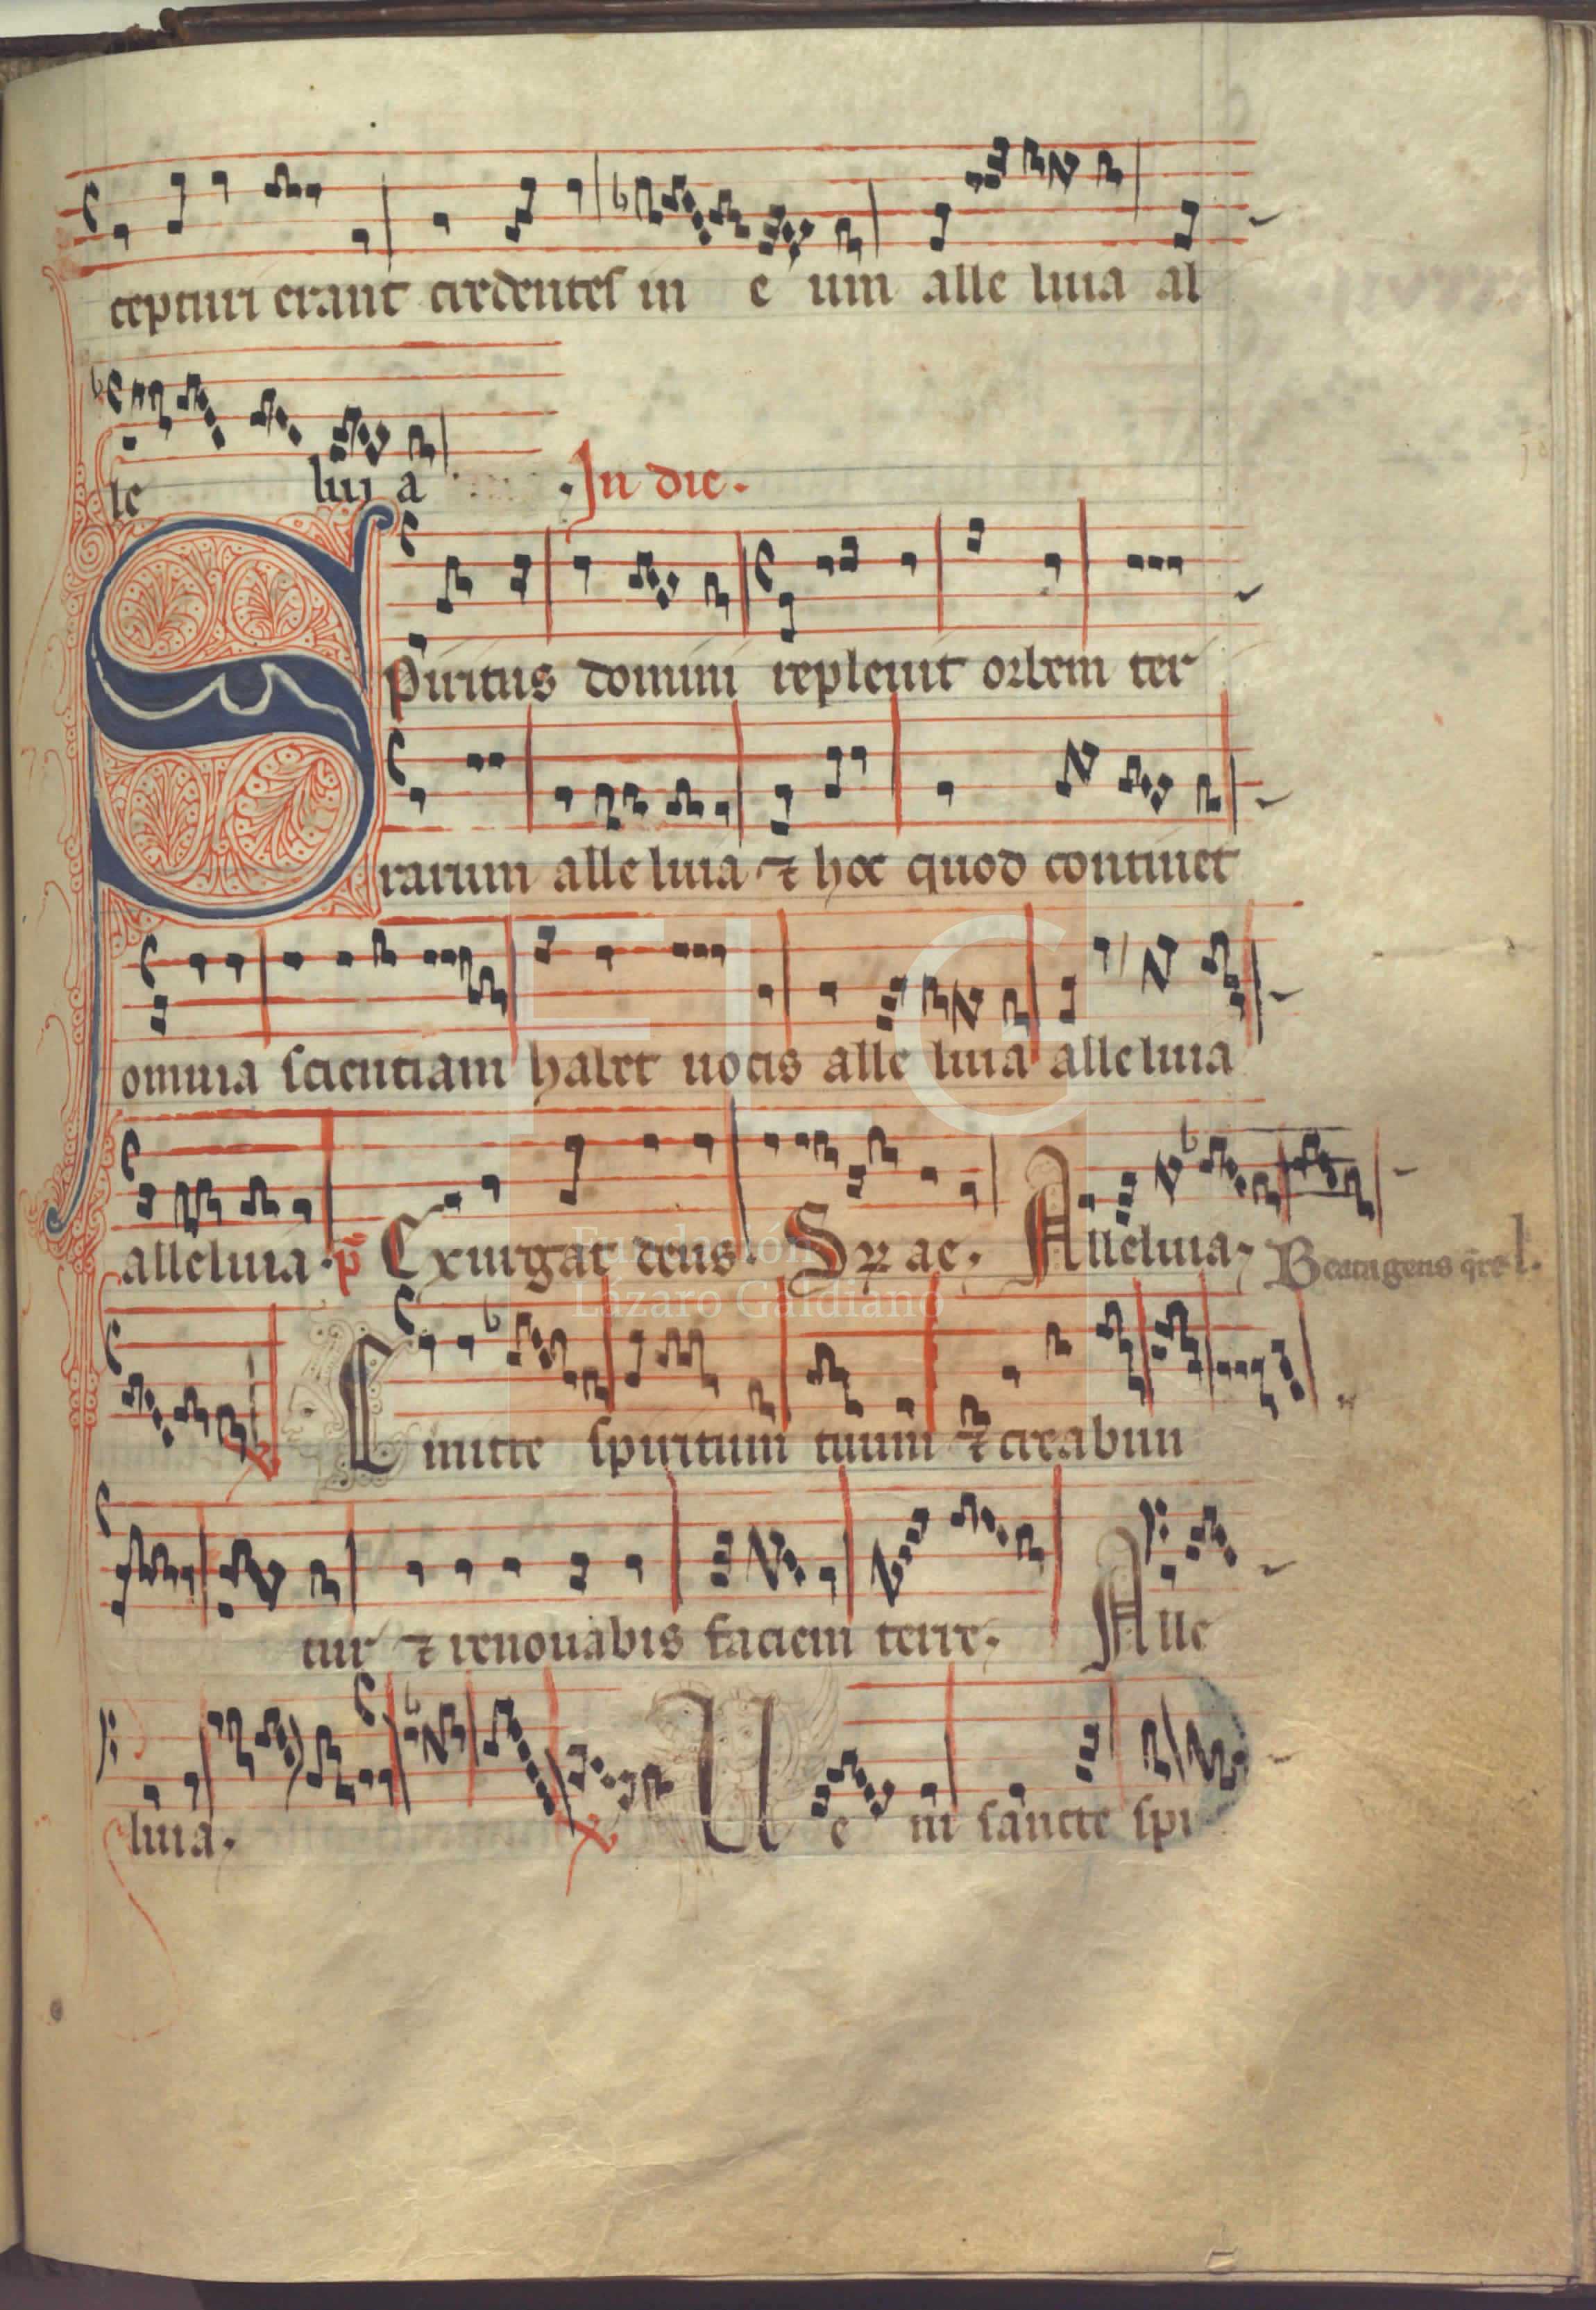 cepturi erant credentes in e um alle luia al
le lui a .In die.
Spiritus domini repleuit orbem ter
rarum alle luia ⁊ hoc quod continet
omnia scientiam habet uocis alle luia alleluia
alleluia. p̄ Exurgat deus. S℞ ae. Alleluia. Beata gens
Emitte spiritum tuum ⁊ creabun
tur ⁊ renouabis faciem terre. Alle
luia. Ue ni sancte spi
FLG
Fundación
Lázaro Galdiano